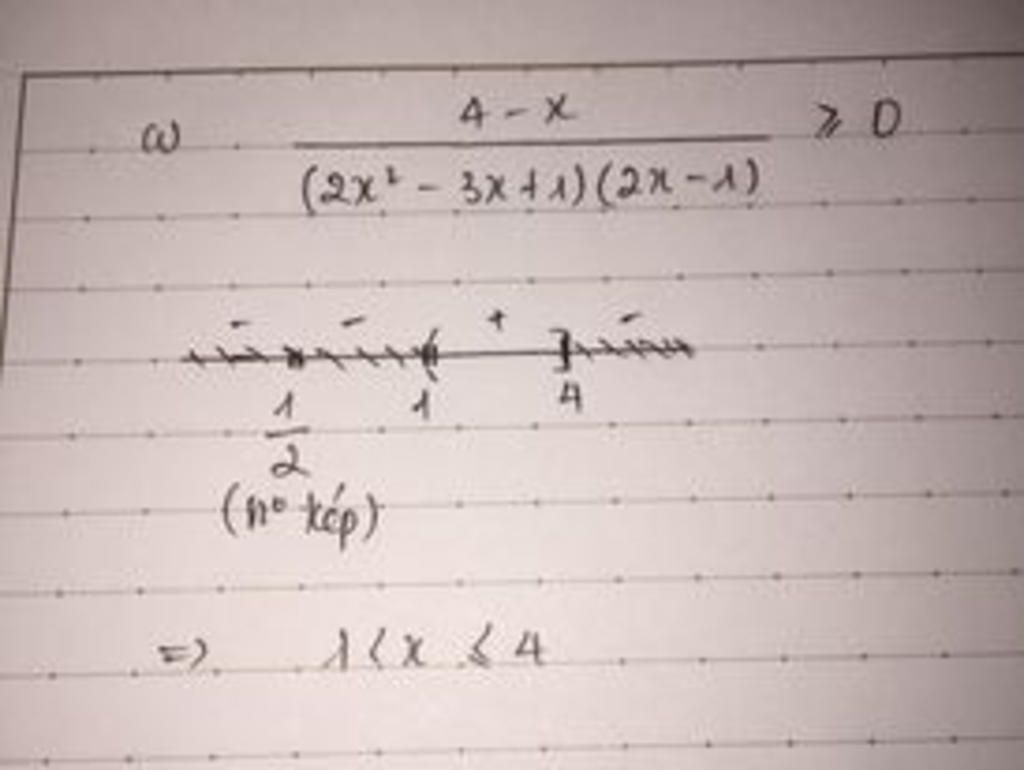 a) 4 - x
(2x² - 3x + 1)(2x - 1) ≥ 0
- - + -
1/2 1 4
(n° kép)
=> 1 < x ≤ 4